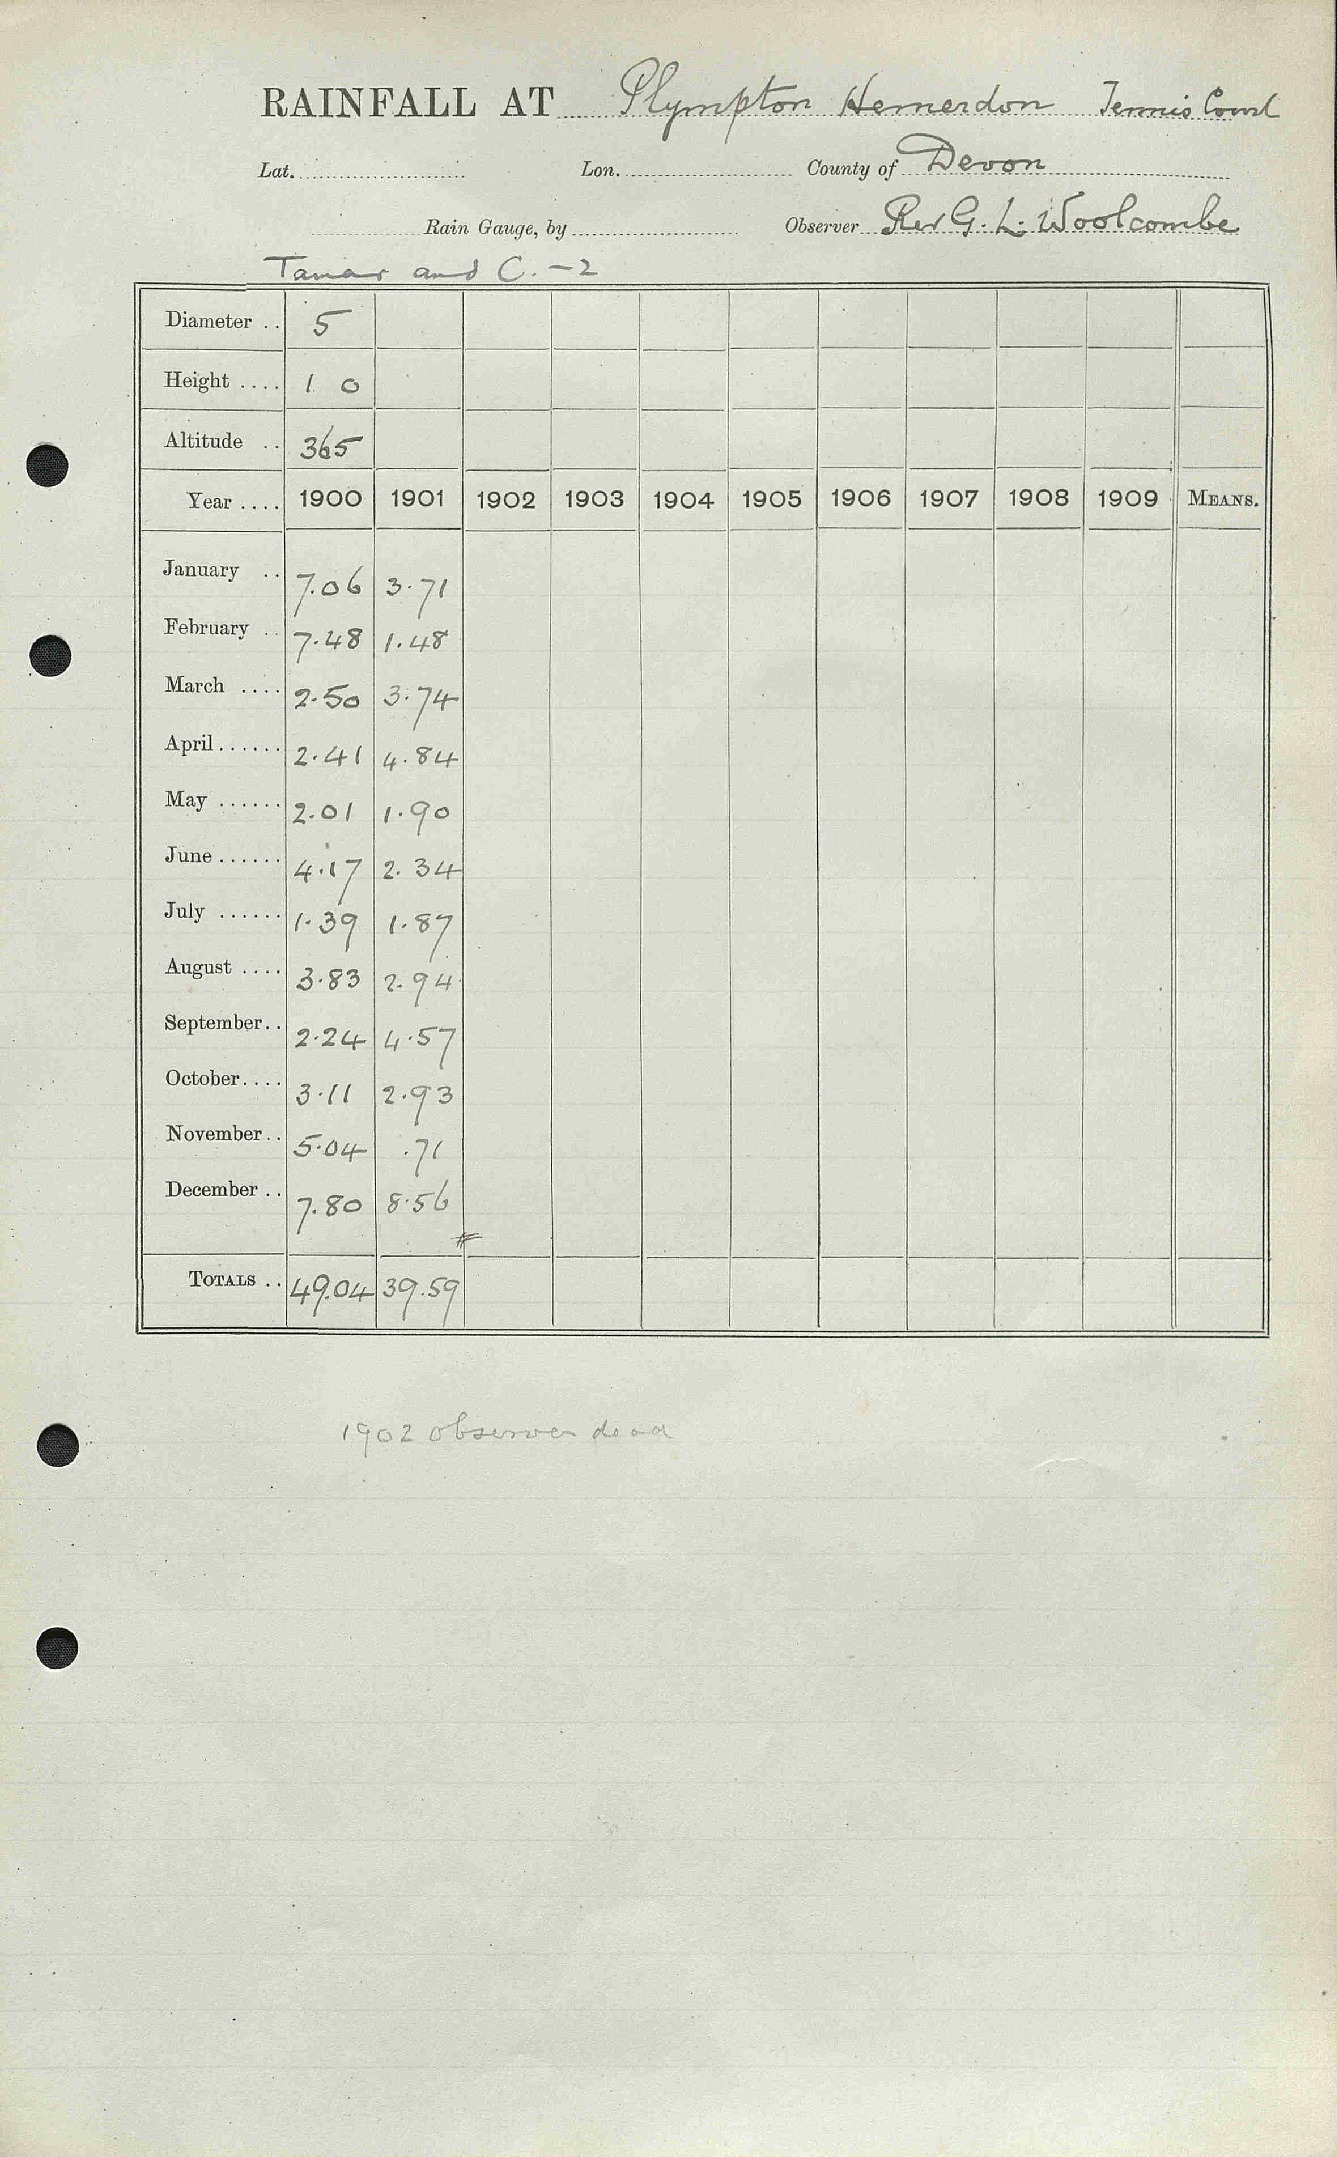 RAINFALL AT Plympton Hemerdon Tennis Court
Lat. Lon. County of Devon
Rain Gauge, by Observer Rev G. L. Woolcombe
Tamar and C. - 2
Diameter .. 5
Height .... 1 0
Altitude .. 365
Year .... 1900 1901 1902 1903 1904 1905 1906 1907 1908 1909 MEANS.
January .. 7.06 3.71
February .. 7.48 1.48
March .... 2.50 3.74
April ...... 2.41 4.84
May ...... 2.01 1.90
June ...... 4.17 2.34
July ...... 1.39 1.87
August .... 3.83 2.94
September.. 2.24 4.57
October.... 3.11 2.93
November.. 5.04 .71
December .. 7.80 8.56
TOTALS .. 49.04 39.59
1902 observer dead